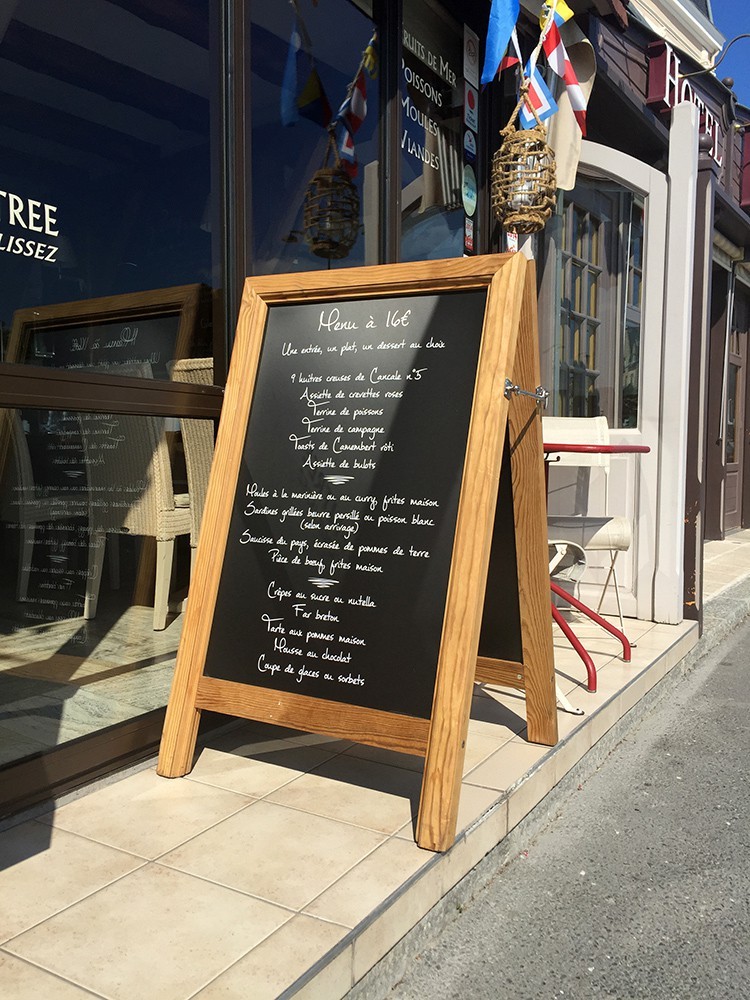 RUITS DE MER
POISSONS
MOULES
VIANDES
HOTEL
TREE
LISSEZ
Menu à 16€
Une entrée, un plat, un dessert au choix
9 huîtres creuses de Cancale n°5
Assiette de crevettes roses
Terrine de poissons
Terrine de campagne
Toasts de Camembert rôti
Assiette de bulots
Moules à la marinière ou au curry, frites maison
Sardines grillées beurre persillé ou poisson blanc
(selon arrivage)
Saucisse du pays, écrasée de pommes de terre
Pièce de bœuf, frites maison
Crêpes au sucre ou nutella
Far breton
Tarte aux pommes maison
Mousse au chocolat
Coupe de glaces ou sorbets